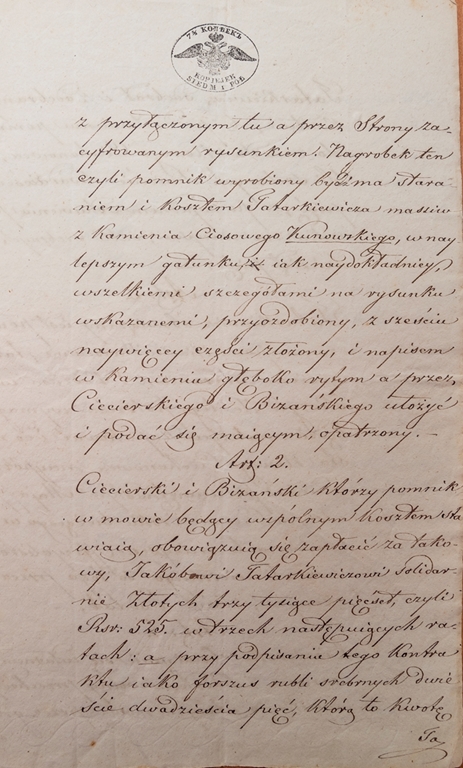 7½ КОПѢЕКЪ
KOPIEJEK
SIEDM I PÓŁ
z przyłączonym tu a przez Strony za=
cyfrowanym rysunkiem. Nagrobek ten
czyli pomnik wyrobiony bydź ma stara=
niem i Kosztem Tatarkiewicza massiw
z Kamienia Ciosowego Kunowskiego, w nay
lepszym gatunku, iak naydokładniey,
wszelkiemi szczegółami na rysunku
wskazanemi, przyozdobiony, z sześciu
naywięcey części złożony, i napisem
w Kamieniu głęboko rytym a przez,
Ciecierskiego i Bizańskiego ułożyć
i podać się maiącym, opatrzony. —
Art: 2.
Ciecierski i Bizański którzy pomnik
w mowie będący wspolnym Kosztem sta
wiaią, obowiązuią się zapłacić za tako
wy, Jakóbowi Tatarkiewiczowi solidar
nie Złotych trzy tysiące pięćset, czyli
Rsr: 525. w trzech następuiących ra=
tach: a przy podpisaniu tego Kontra
ktu iako forszus rubli srebrnych dwie
ście dwadzieścia pięć, którą to Kwotę
Ta